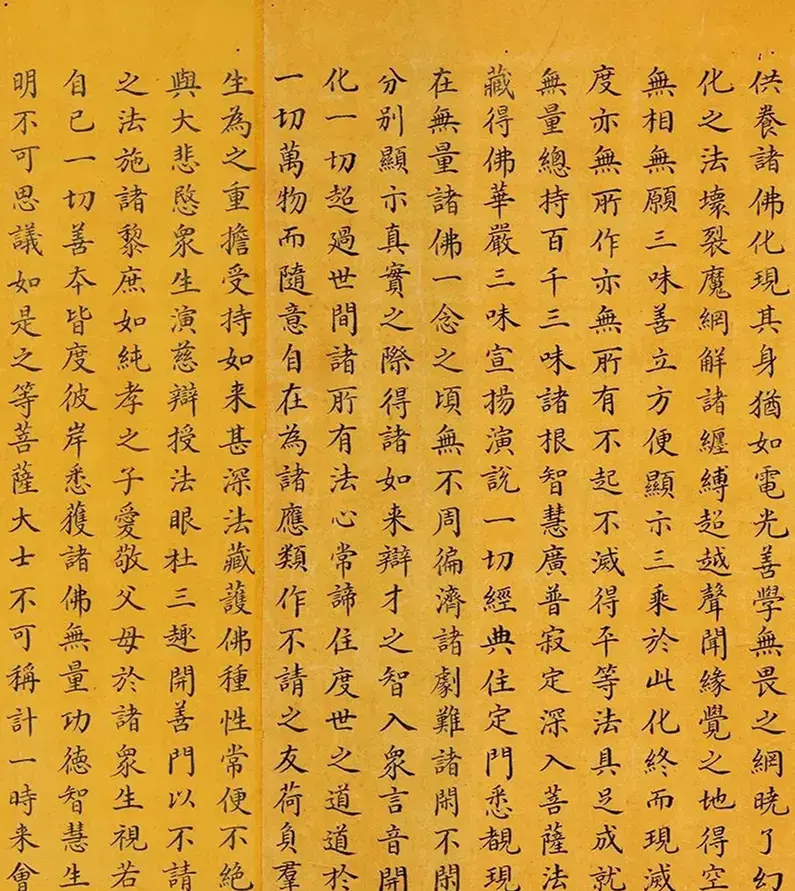 供養諸佛化現其身猶如電光善學無畏之網曉了幻
化之法壞裂魔網解諸纏縛超越聲聞緣覺之地得空
無相無願三昧善立方便顯示三乘於此化終而現滅
度亦無所作亦無所有不起不滅得平等法具足成就
無量總持百千三昧諸根智慧廣普寂定深入菩薩法
藏得佛華嚴三昧宣揚演說一切經典住定門悉覩現
在無量諸佛一念之頃無不周徧濟諸劇難諸閑不閑
分別顯示真實之際得諸如来辯才之智入衆言音開
化一切超過世間諸所有法心常諦住度世之道道於
一切萬物而隨意自在為諸應類作不請之友荷負羣
生為之重擔受持如来甚深法藏護佛種性常便不絕
興大悲愍衆生演慈辯授法眼杜三趣開善門以不請
之法施諸黎庶如純孝之子愛敬父母於諸衆生視若
自己一切善本皆度彼岸悉獲諸佛無量功德智慧生
明不可思議如是之等菩薩大士不可稱計一時来會